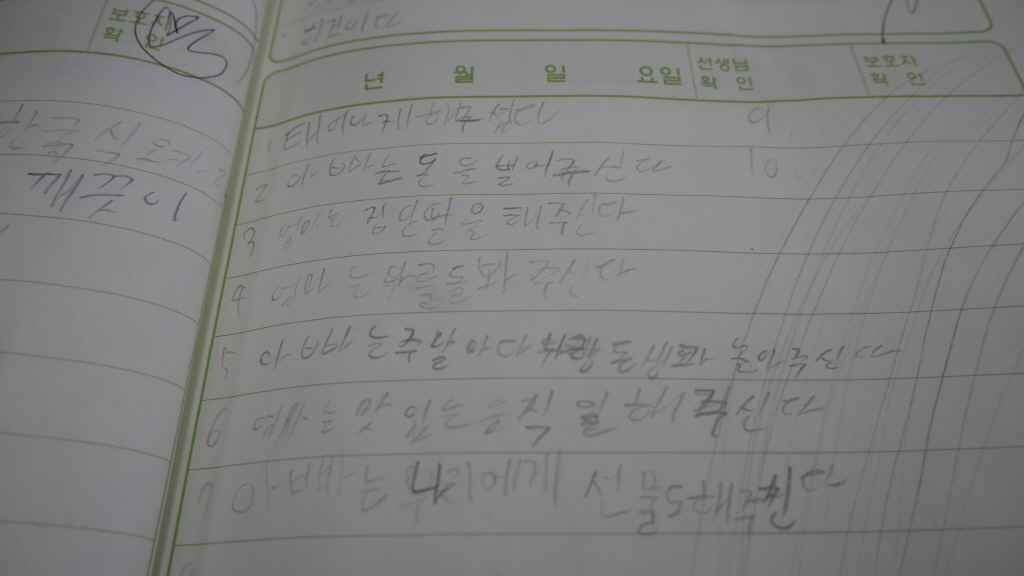 보호자
확 인
한국 식
깨끗이
년 월 일 요일 선생님 확 인 보호자 확 인
태어나게 해주셨다 9.
2 아빠는 돈을 벌어주신다 10.
3 엄마는 집안일을 해주신다
4 엄마는 돌봐 주신다
5 아빠는 주말마다 동생과 놀아주신다
6 엄마는 맛있는 음식을 해주신다
7 아빠는 우리에게 선물도 해주신다